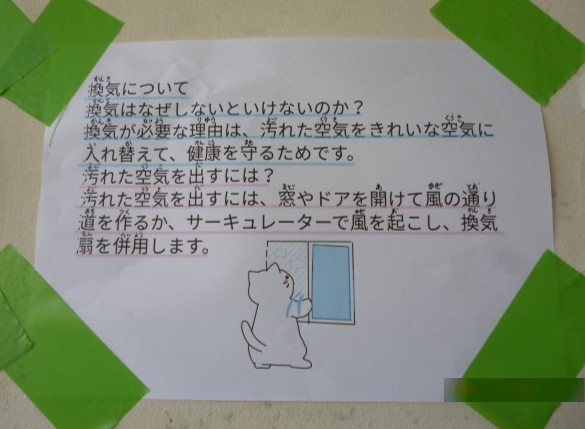 換気について
換気はなぜしないといけないのか？
換気が必要な理由は、汚れた空気をきれいな空気に
入れ替えて、健康を守るためです。
汚れた空気を出すには？
汚れた空気を出すには、窓やドアを開けて風の通り
道を作るか、サーキュレーターで風を起こし、換気
扇を併用します。